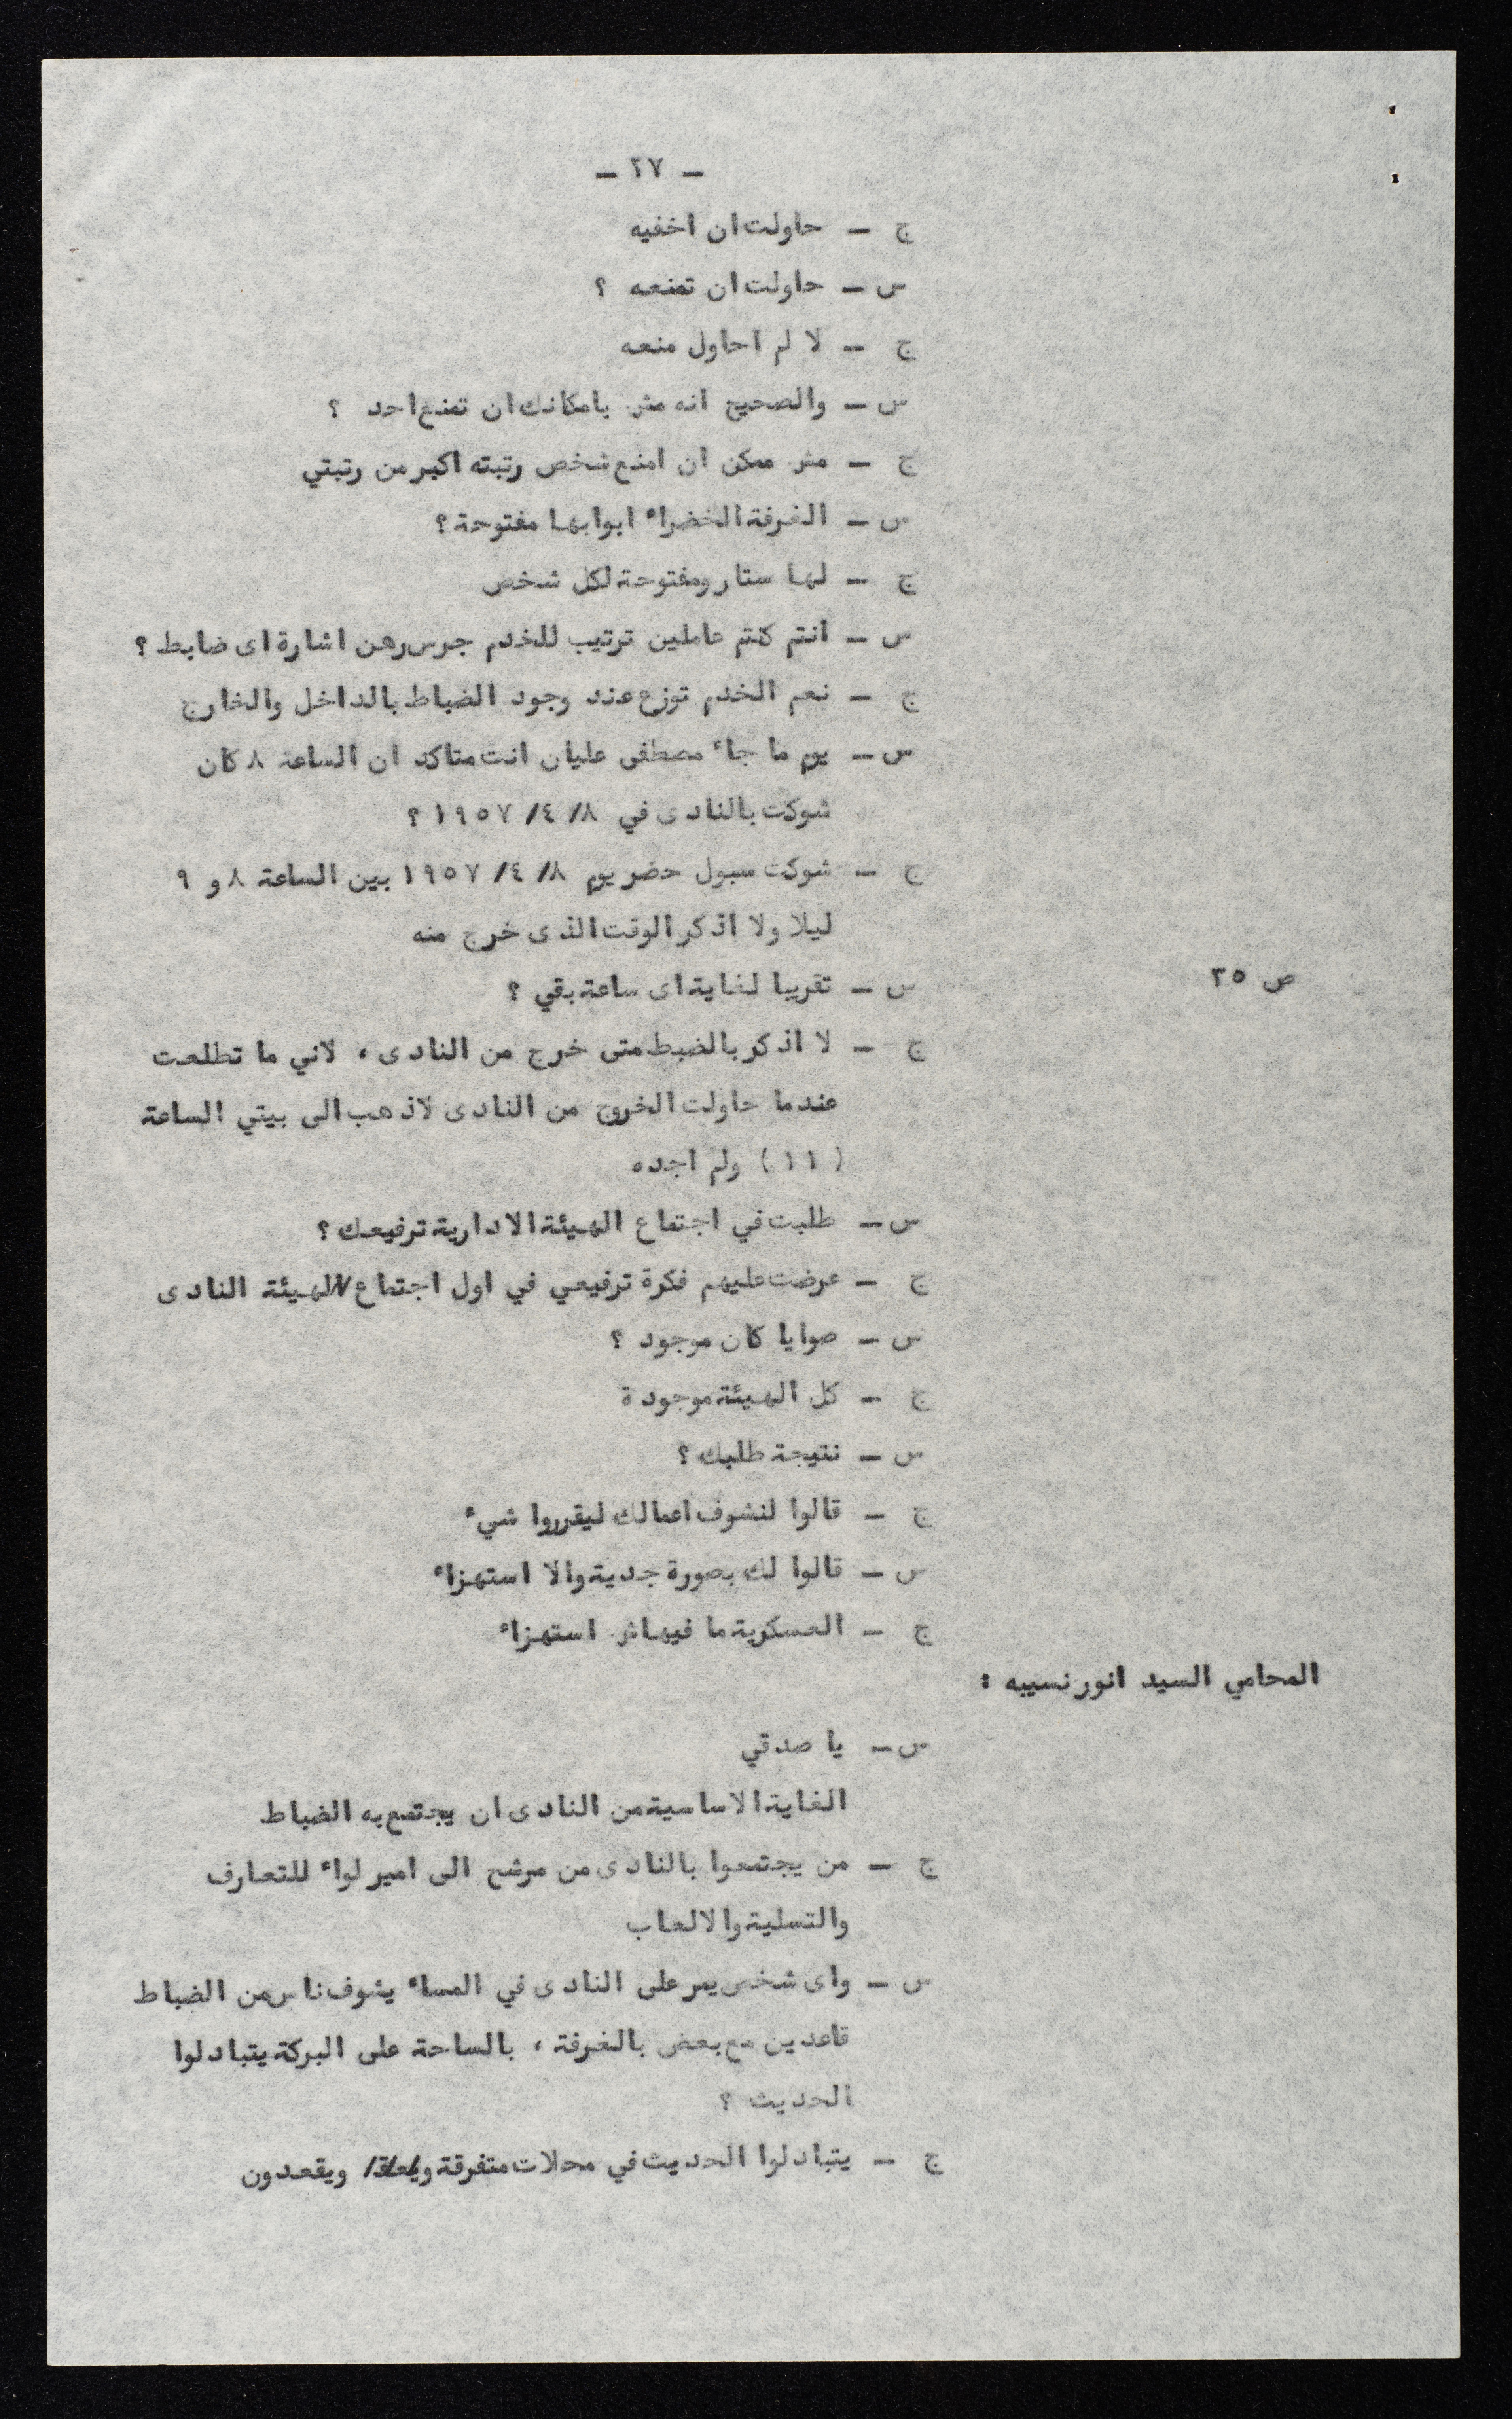 - ٢٧ -
ج - حاولت ان اخفيه
س - حاولت ان تمنعه ؟
ج - لا لم احاول منعه
س - والصحيح انه مش بامكانك ان تمنع احد ؟
ج - مش ممكن ان امنع شخص رتبته اكبر من رتبتي
س - الغرفة الخضراء ابوابها مفتوحة ؟
ج - لها ستار ومفتوحة لكل شخص
س - انتم كنتم عاملين ترتيب للخدم جرس رهن اشارة اى ضابط ؟
ج - نعم الخدم توزع عند وجود الضباط بالداخل والخارج
س - يوم ما جاء مصطفى عليان انت متاكد ان الساعة ٨ كان
شوكت بالنادى في ٨/ ٤/ ١٩٥٧ ؟
ج - شوكت سبول حضر يوم ٨/ ٤/ ١٩٥٧ بين الساعة ٨ و ٩
ليلا ولا اذكر الوقت الذى خرج منه
ص ٣٥
س - تقريبا لغاية اى ساعة بقي ؟
ج - لا اذكر بالضبط متى خرج من النادى ، لاني ما تطلعت
عندما حاولت الخروج من النادى لاذهب الى بيتي الساعة
( ١١ ) ولم اجده
س - طلبت في اجتماع الهيئة الادارية ترفيعك ؟
ج - عرضت عليهم فكرة ترفيعي في اول اجتماع لهيئة النادى
س - صوايا كان موجود ؟
ج - كل الهيئة موجودة
س - نتيجة طلبك ؟
ج - قالوا لنشوف اعمالك ليقرروا شيء
س - قالوا لك بصورة جدية والا استهزاء
ج - العسكرية ما فيهاش استهزاء
المحامي السيد انور نسيبه :
س - يا صدقي
الغاية الاساسية من النادى ان يجتمع به الضباط
ج - من يجتمعوا بالنادى من مرشح الى امير لواء للتعارف
والتسلية والالعاب
س - واى شخص يمر على النادى في المساء يشوف ناس من الضباط
قاعدين مع بعض بالغرفة ، بالساحة على البركة يتبادلوا
الحديث ؟
ج - يتبادلوا الحديث في محلات متفرقة ويقعدون